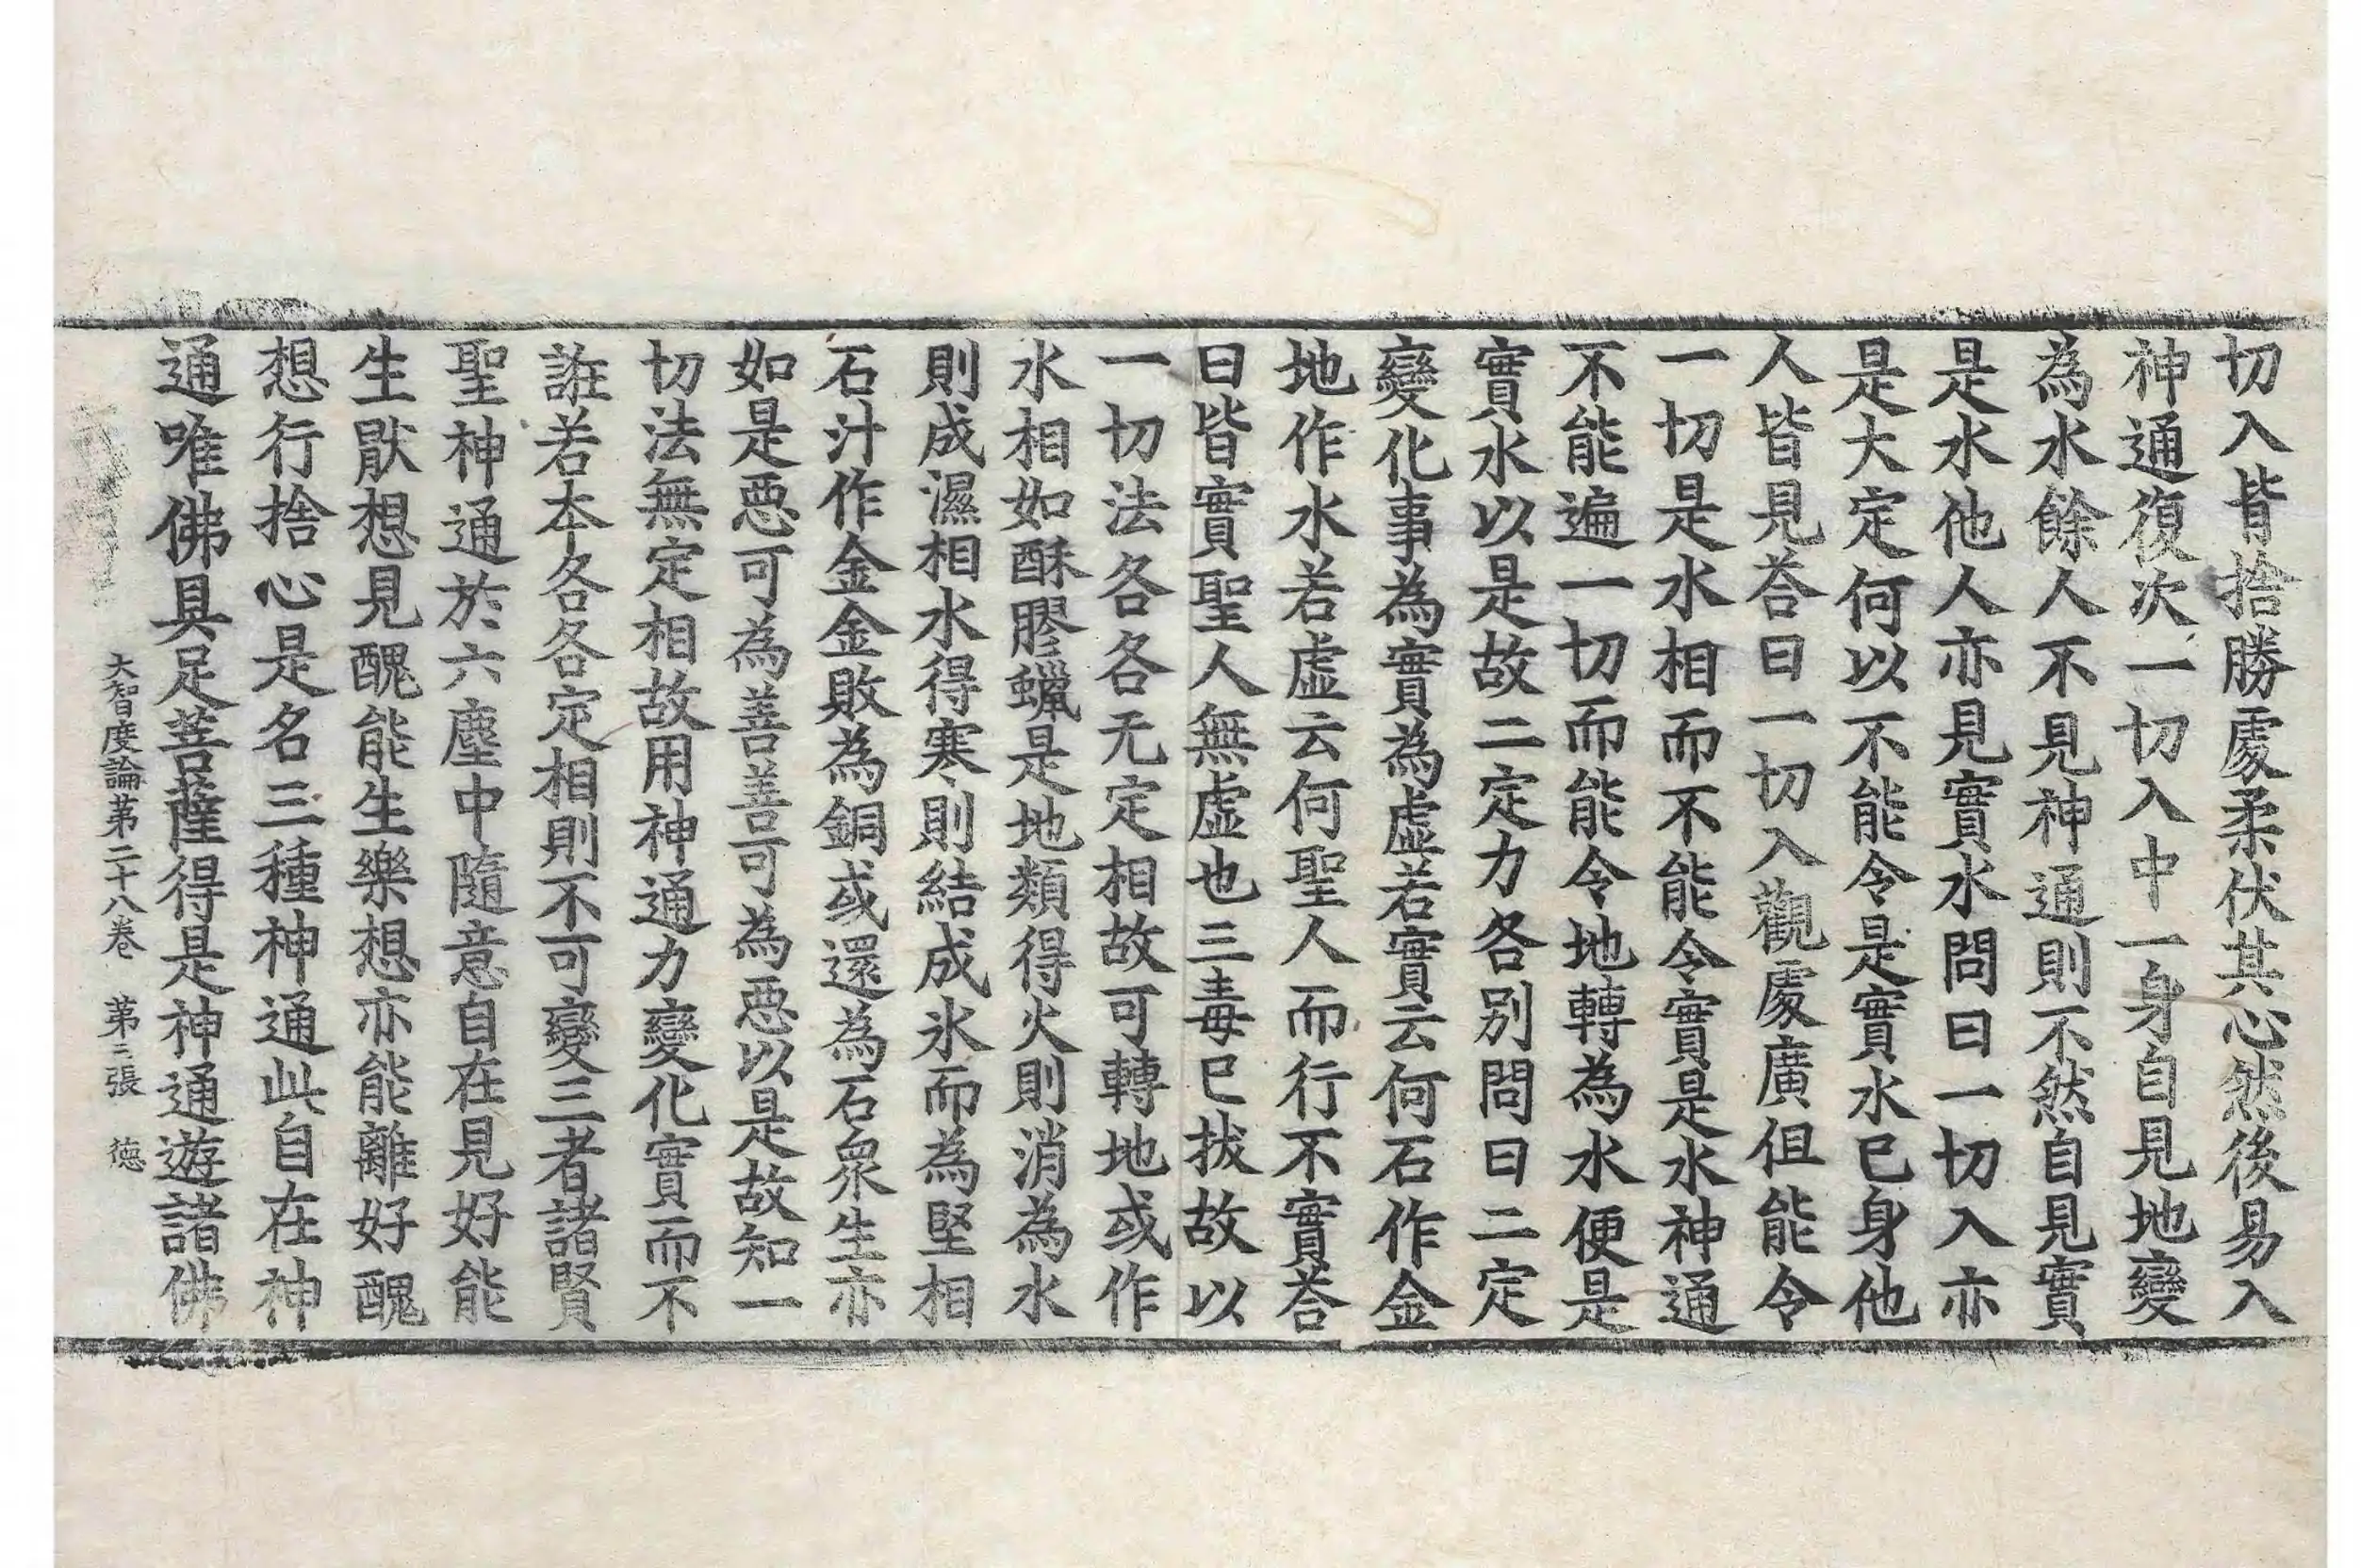 切入皆捨勝處柔伏其心然後易入
神通復次一切入中一身自見地變
為水餘人不見神通則不然自見實
是水他人亦見實水問曰一切入亦
是大定何以不能令是實水已身他
人皆見荅曰一切入觀處廣但能令
一切是水相而不能令實是水神通
不能遍一切而能令地轉為水便是
實水以是故二定力各別問曰二定
變化事為實為虛若實云何石作金
地作水若虛云何聖人而行不實荅
曰皆實聖人無虛也三毒已拔故以
一切法各各无定相故可轉地或作
水相如酥膠蠟是地類得火則消為水
則成濕相水得寒則結成氷而為堅相
石汁作金金敗為銅或還為石眾生亦
如是惡可為善善可為惡以是故知一
切法無定相故用神通力變化實而不
誑若本各各定相則不可變三者諸賢
聖神通於六塵中隨意自在見好能
生猒想見醜能生樂想亦能離好醜
想行捨心是名三種神通此自在神
通唯佛具足菩薩得是神通遊諸佛
大智度論第二十八卷 第三張 德